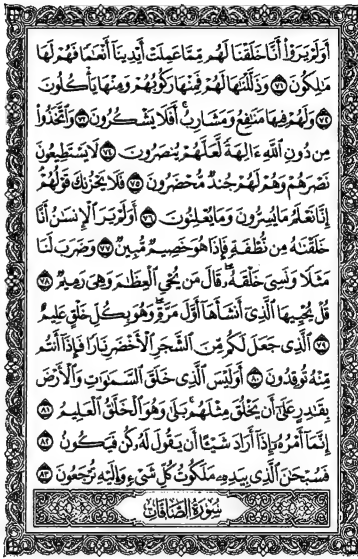 أَوَلَمْ يَرَوْا أَنَّا خَلَقْنَا لَهُم مِّمَّا عَمِلَتْ أَيْدِينَا أَنْعَامًا فَهُمْ لَهَا
مَالِكُونَ ٧١ وَذَلَّلْنَاهَا لَهُمْ فَمِنْهَا رَكُوبُهُمْ وَمِنْهَا يَأْكُلُونَ
٧٢ وَلَهُمْ فِيهَا مَنَافِعُ وَمَشَارِبُ أَفَلَا يَشْكُرُونَ ٧٣ وَاتَّخَذُوا
مِن دُونِ اللَّهِ ءَالِهَةً لَّعَلَّهُمْ يُنصَرُونَ ٧٤ لَا يَسْتَطِيعُونَ
نَصْرَهُمْ وَهُمْ لَهُمْ جُندٌ مُّحْضَرُونَ ٧٥ فَلَا يَحْزُنكَ قَوْلُهُمْ
إِنَّا نَعْلَمُ مَا يُسِرُّونَ وَمَا يُعْلِنُونَ ٧٦ أَوَلَمْ يَرَ الْإِنسَانُ أَنَّا
خَلَقْنَاهُ مِن نُّطْفَةٍ فَإِذَا هُوَ خَصِيمٌ مُّبِينٌ ٧٧ وَضَرَبَ لَنَا
مَثَلًا وَنَسِيَ خَلْقَهُ قَالَ مَن يُحْيِ الْعِظَامَ وَهِيَ رَمِيمٌ ٧٨
قُلْ يُحْيِيهَا الَّذِي أَنشَأَهَا أَوَّلَ مَرَّةٍ وَهُوَ بِكُلِّ خَلْقٍ عَلِيمٌ
٧٩ الَّذِي جَعَلَ لَكُم مِّنَ الشَّجَرِ الْأَخْضَرِ نَارًا فَإِذَا أَنتُم
مِّنْهُ تُوقِدُونَ ٨٠ أَوَلَيْسَ الَّذِي خَلَقَ السَّمَاوَاتِ وَالْأَرْضَ
بِقَادِرٍ عَلَىٰ أَن يَخْلُقَ مِثْلَهُم بَلَىٰ وَهُوَ الْخَلَّاقُ الْعَلِيمُ ٨١
إِنَّمَا أَمْرُهُ إِذَا أَرَادَ شَيْئًا أَن يَقُولَ لَهُ كُن فَيَكُونُ ٨٢
فَسُبْحَانَ الَّذِي بِيَدِهِ مَلَكُوتُ كُلِّ شَيْءٍ وَإِلَيْهِ تُرْجَعُونَ ٨٣
سُورَةُ الصَّافَّات